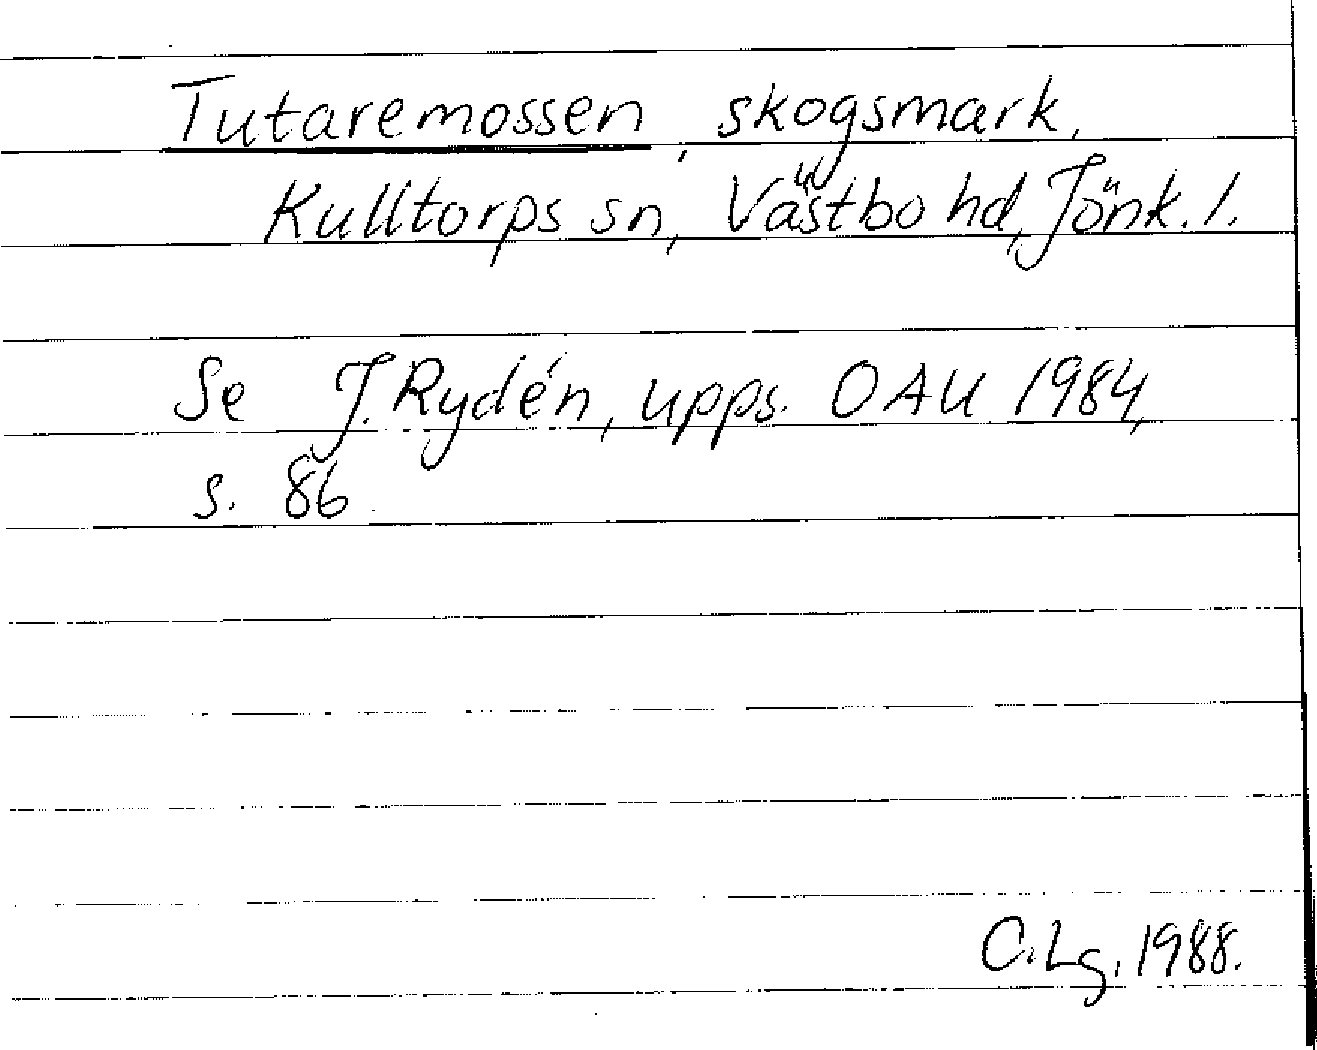 Tutaremossen, skogsmark,
Kulltorps sn, Västbo hd, Jönk. l.
Se J. Rydén, upps. OAU 1984,
s. 86
C. Lg. 1988.